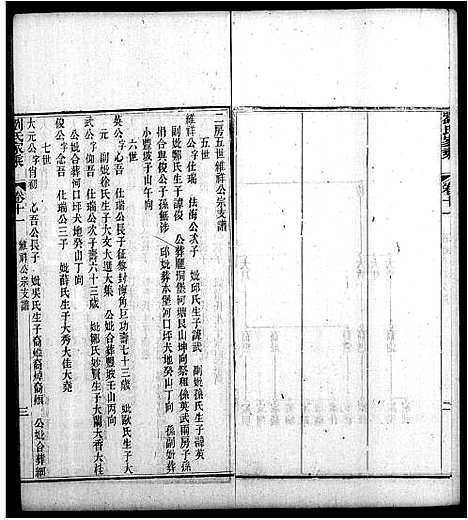 二房五世維祥公宗支譜
五世
維祥公字仕瑞 法海公次子 妣邱氏生子諱武 副妣孫氏生子諱英
副妣鄒氏生子諱俊 公葬羅塘堡河塘艮山坤向祭租係英武兩房子孫
捐合與俊公子孫無涉 邱妣葬本堡河口坪犬地癸山丁向 孫副妣葬
小豐坡子山午向
六世
英公字心吾 仕瑞公長子征黎封海角巨功壽七十三歲 妣歐氏生子大
元 副妣徐氏生子大文大選大集 公妣合葬豐坡壬山丙向
武公字仰吾 仕瑞公次子壽六十三歲 妣鄒氏妙賢生子大蘭大香大桂
公妣合葬河口坪犬地癸山丁向
俊公字念吾 仕瑞公三子 妣薛氏生子大秀大佳大堯
七世
大元公字肖初 心吾公長子 妣吳氏生子裔 公妣合葬細
劉氏家乘
卷十一
維祥公宗支譜
三